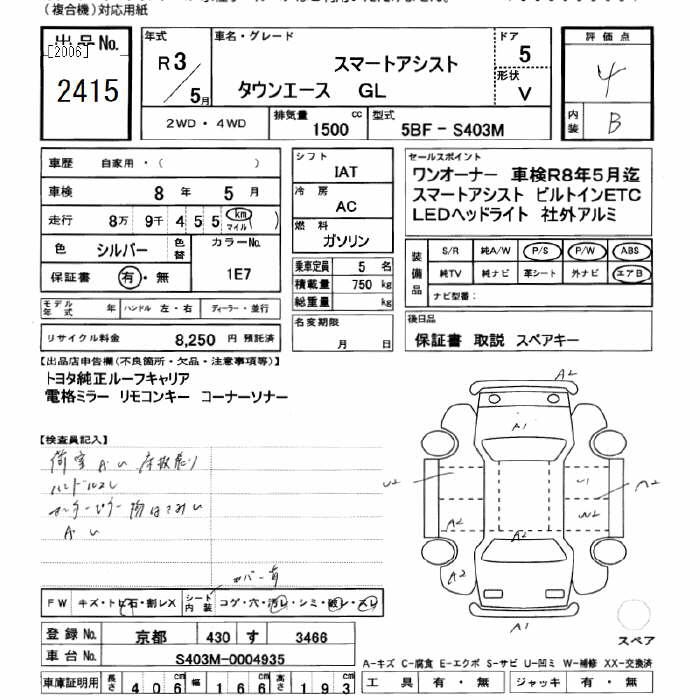 (複合機)対応用紙
出品No.
[2006]
2415
年式
R3/5月
車名・グレード
スマートアシスト
タウンエース GL
ドア
5
形状
V
評価点
4
内装
B
2WD・4WD
排気量 1500 cc
型式 5BF-S403M
車歴 自家用・( )
車検 8年 5月
走行 8万 9千 4 5 5 km マイル )
色 シルバー
色替
カラーNo.
1E7
保証書 有・無
シフト
IAT
冷房
AC
燃料
ガソリン
乗車定員 5 名
積載量 750 kg
総重量 kg
セールスポイント
ワンオーナー 車検R8年5月迄
スマートアシスト ビルトインETC
LEDヘッドライト 社外アルミ
装備品
S/R 純A/W P/S P/W ABS
純TV 純ナビ 革シート 外ナビ エアB
ナビ型番:
モデル年式 年 ハンドル 左・右 ディーラー・並行
リサイクル料金 8,250 円 預託済
名変期限
月 日
後日品
保証書 取説 スペアキー
【出品店申告欄(不良箇所・欠品・注意事項等)】
トヨタ純正ルーフキャリア
電格ミラー リモコンキー コーナーソナー
【検査員記入】
荷室 A
ハンドルスレ
FW キズ・トビ石・割レX
シート内装 コゲ・穴・汚レ・シミ・破レ・スレ
カバー有
登録No. 京都 430 す 3466
車台No. S403M-0004935
車庫証明用 長さ 406cm 幅 166cm 高さ 193cm
A2
A1
U2
U1
A2
W2
A2
A2
A2
A1
スペア
A-キズ C-腐食 E-エクボ S-サビ U-凹ミ W-補修 XX-交換済
工具 有・無 ジャッキ 有・無